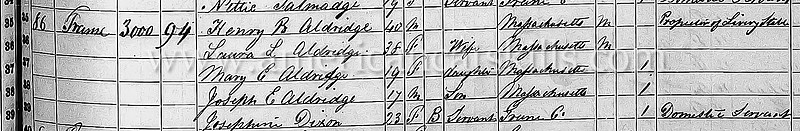 Nettie Talmadge 19 F Servant
35 86 Frame 3000 94 Henry B Aldridge 40 M Massachusetts M Proprietor of Livery Stable
36 Laura L Aldridge 38 F Wife Massachusetts M
37 Mary E Aldridge 19 F Daughter Massachusetts 1
38 Joseph E Aldridge 17 M Son Massachusetts 1
39 Josephine Dixon 23 F B Servant 1 Domestic Servant
40